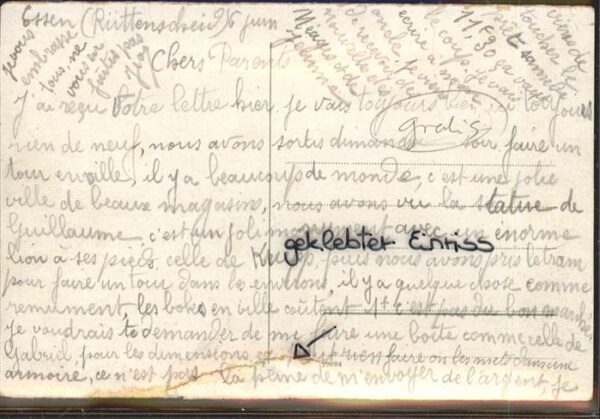 Essen (Rüttenscheid) 6 juin
Chers Parents
J'ai reçu votre lettre hier je vais toujours bien, ici toujours
rien de neuf, nous avons sortis dimanche pour faire un
tour en ville, il y a beaucoup de monde, c'est une jolie
ville de beaux magasins, nous avons vu la statue de
Guillaume, c'est un joli monument avec un énorme
lion à ses pieds, celle de Krupp, puis nous avons pris le tram
pour faire un tour dans les environs, il y a quelque chose comme
les en ville coûtent c'est pas du bon marché
je voudrais te demander de me faire une boîte comme celle de
Gabriel pour les dimensions rien faire on les mets dans une
armoire, ce n'est pas la peine de m'envoyer de l'argent, je
viens de
toucher le
prêt samedi
11F30 ça va
je vais
écrire à
je vous
embrasse
tous, ne
vous en
faites pas
gratis
geklebter Einriss